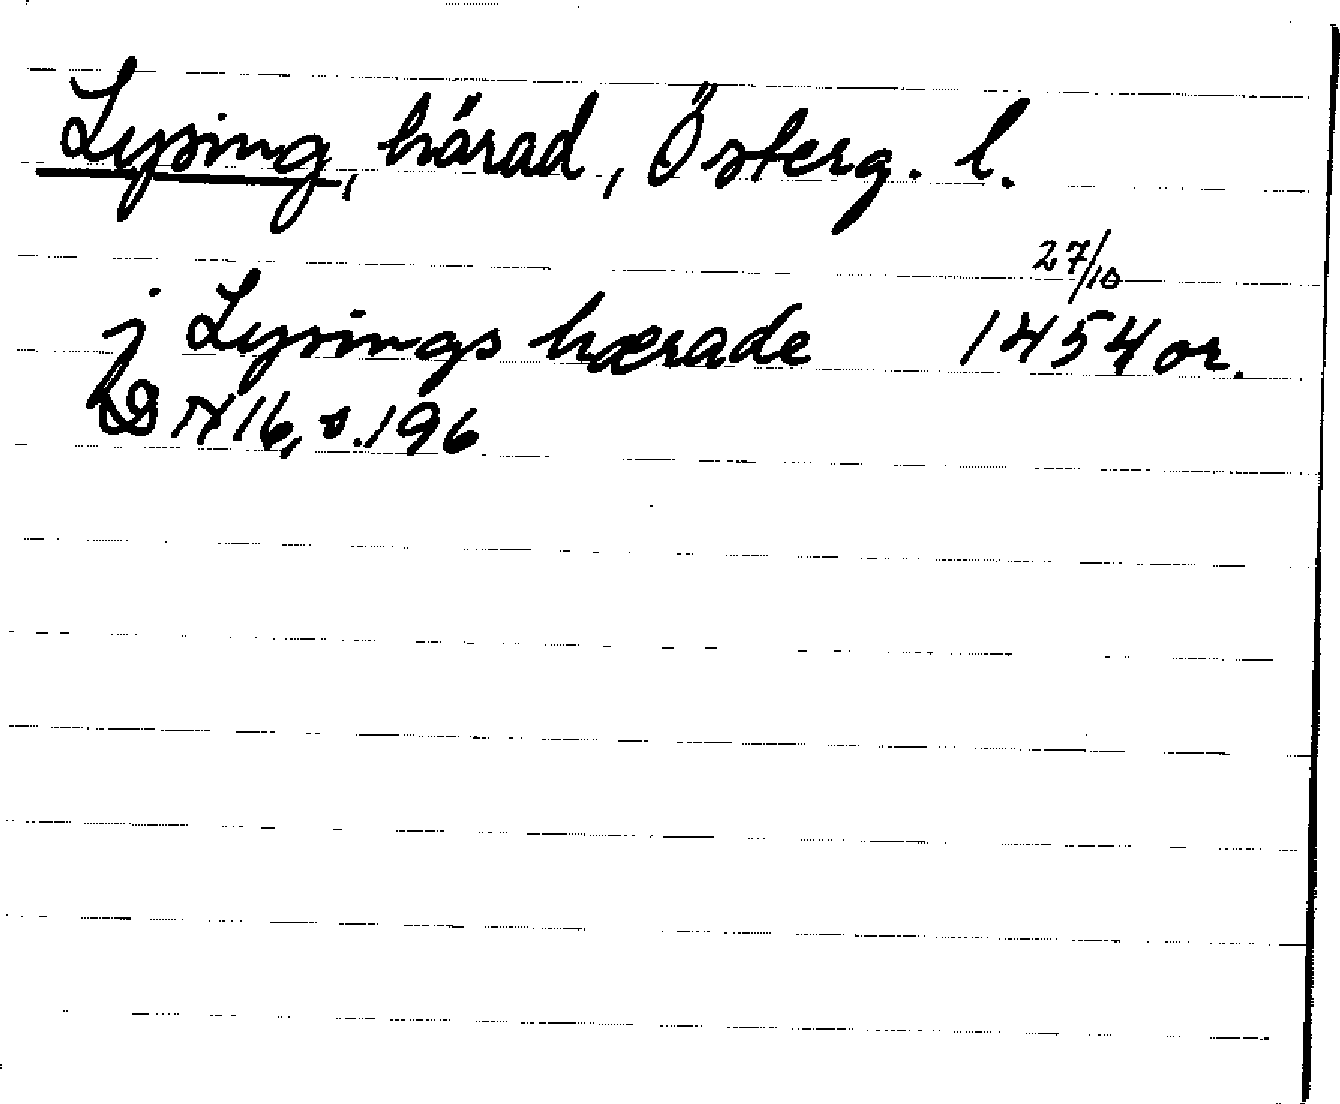 Lysing, härad, Österg. l.
27/10
j Lysings hærade 1454 or.
DN 16, s. 196